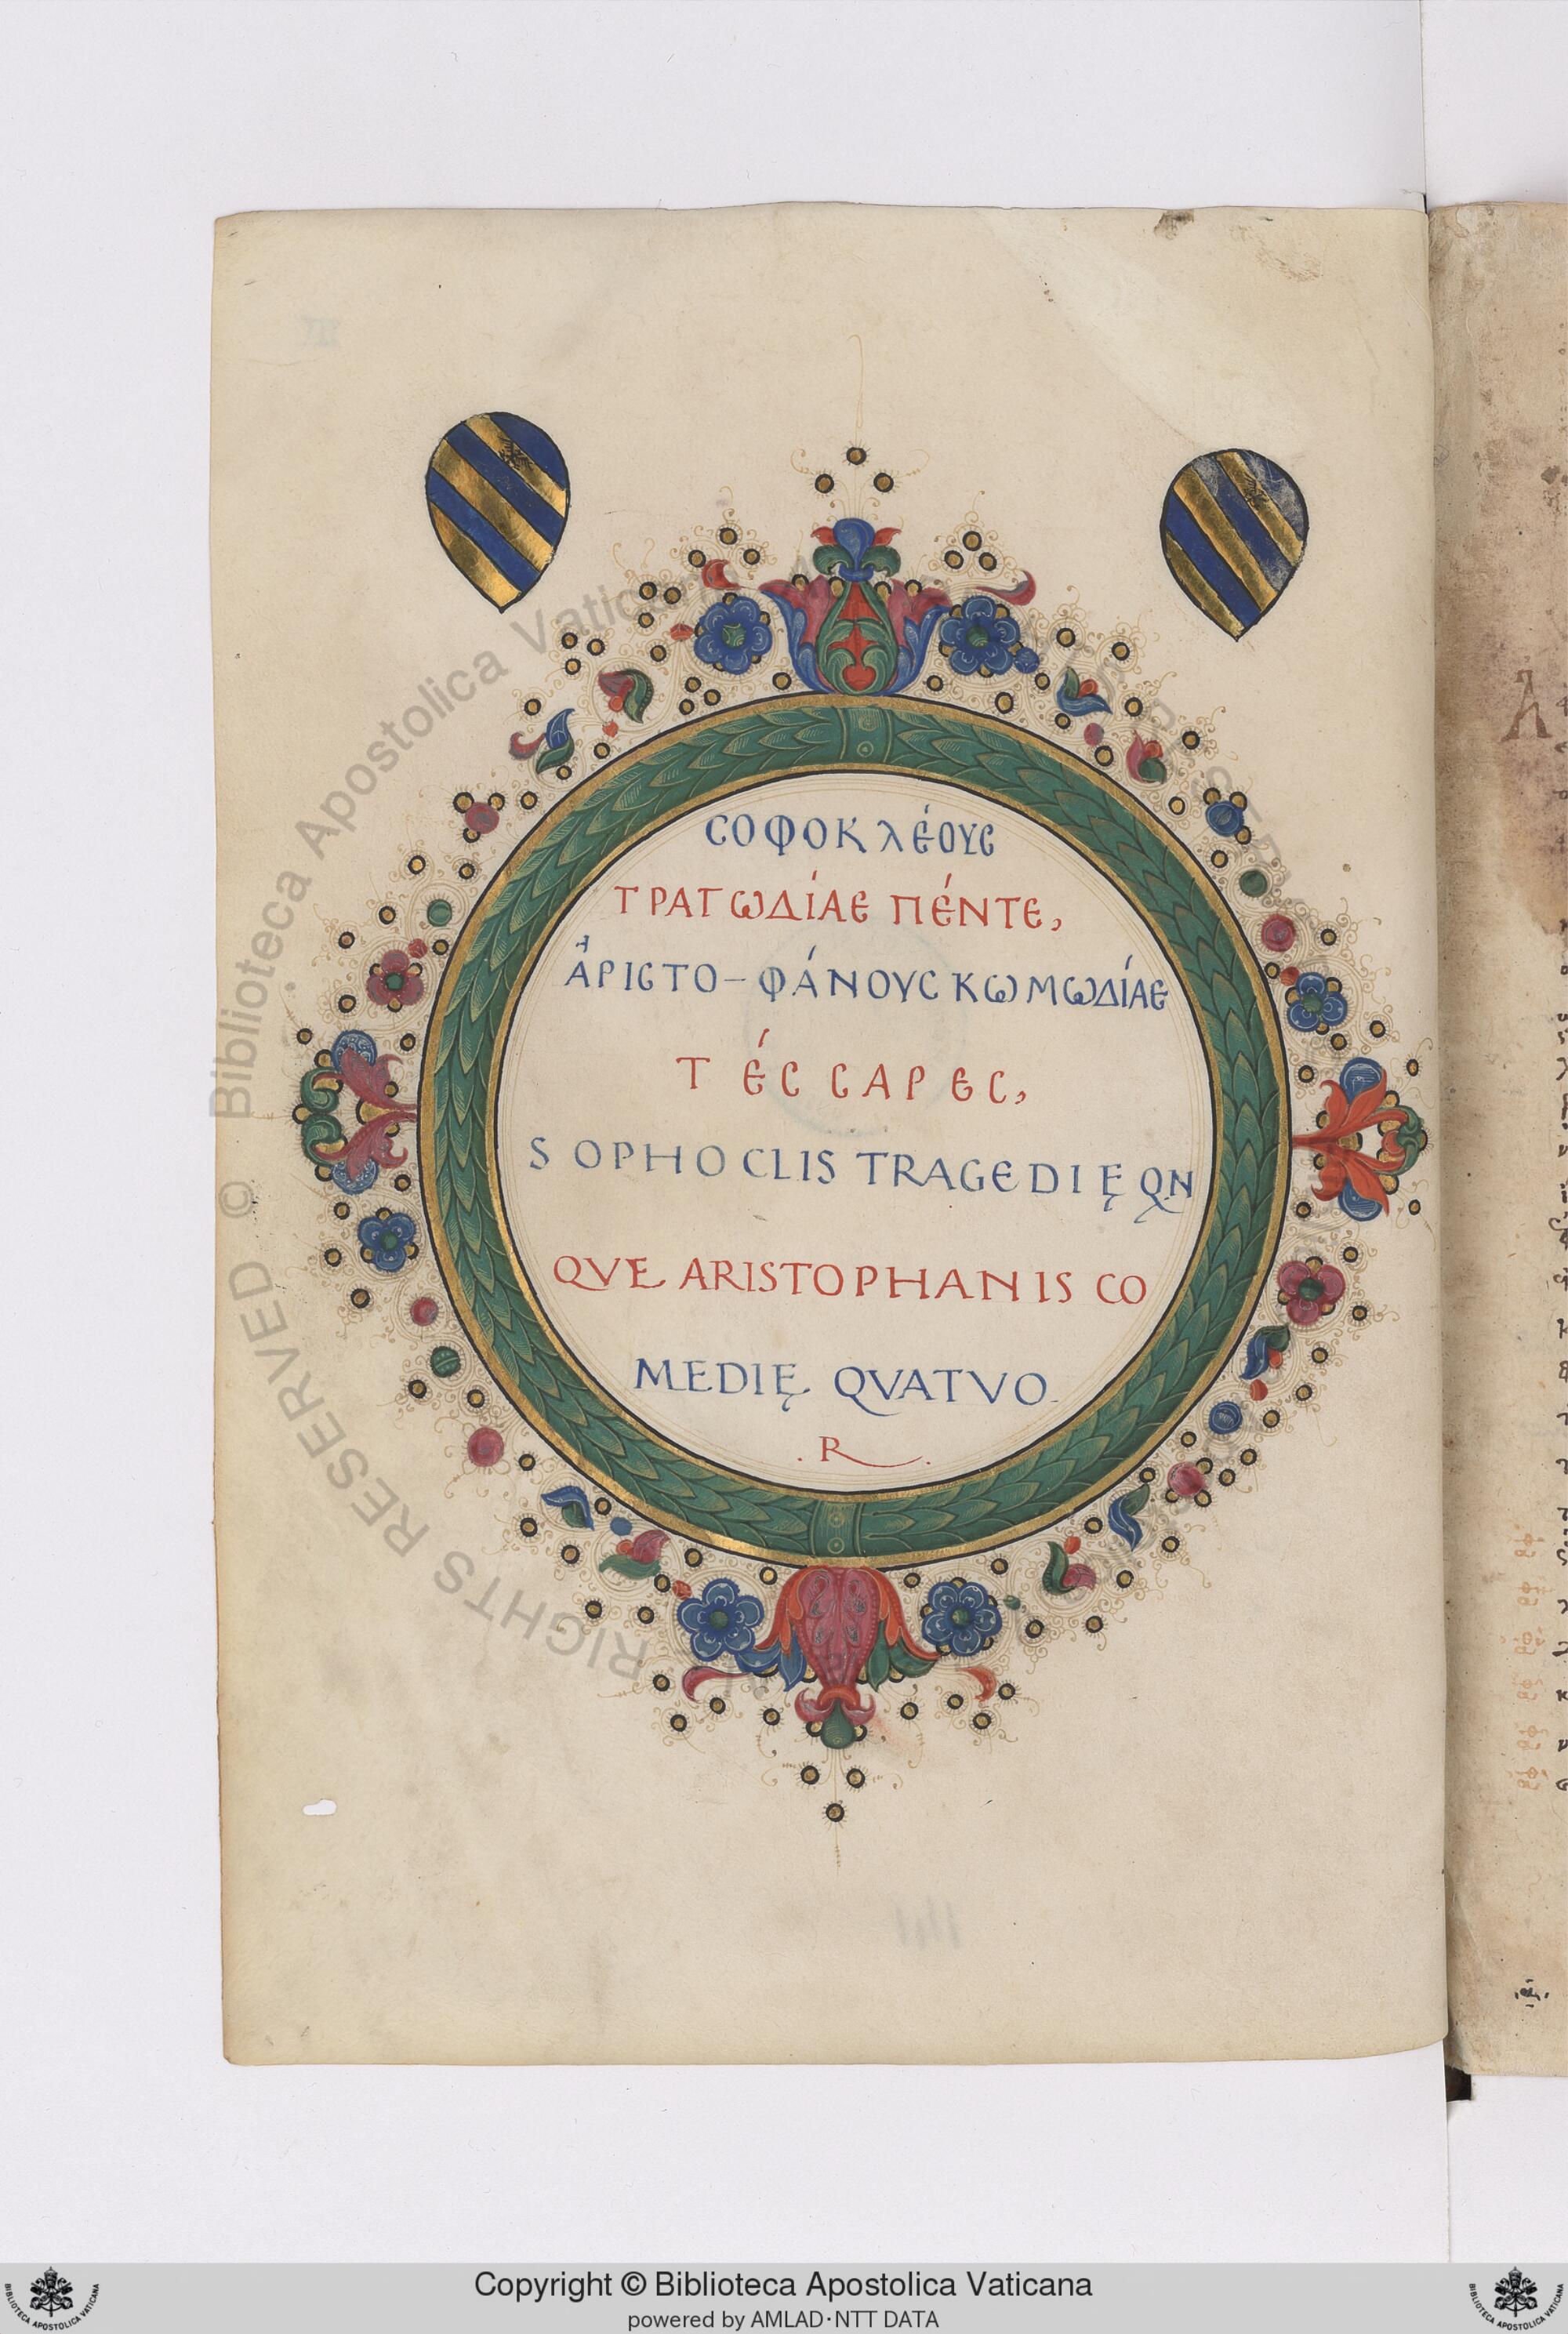 ϹΟΦΟΚΛΈΟΥϹ
ΤΡΑΓΩΔΊΑΕ ΠΈΝΤΕ,
ἈΡΙϹΤΟ-ΦΆΝΟΥϹ ΚΩΜΩΔΊΑΕ
ΤΈϹϹΑΡΕϹ,
SOPHOCLIS TRAGEDIĘ QN
QVE ARISTOPHANIS CO
MEDIĘ QVATVO
.R.
© Biblioteca Apostolica Vaticana
RIGHTS RESERVED
Copyright © Biblioteca Apostolica Vaticana
powered by AMLAD·NTT DATA
BIBLIOTECA APOSTOLICA VATICANA
BIBLIOTECA APOSTOLICA VATICANA